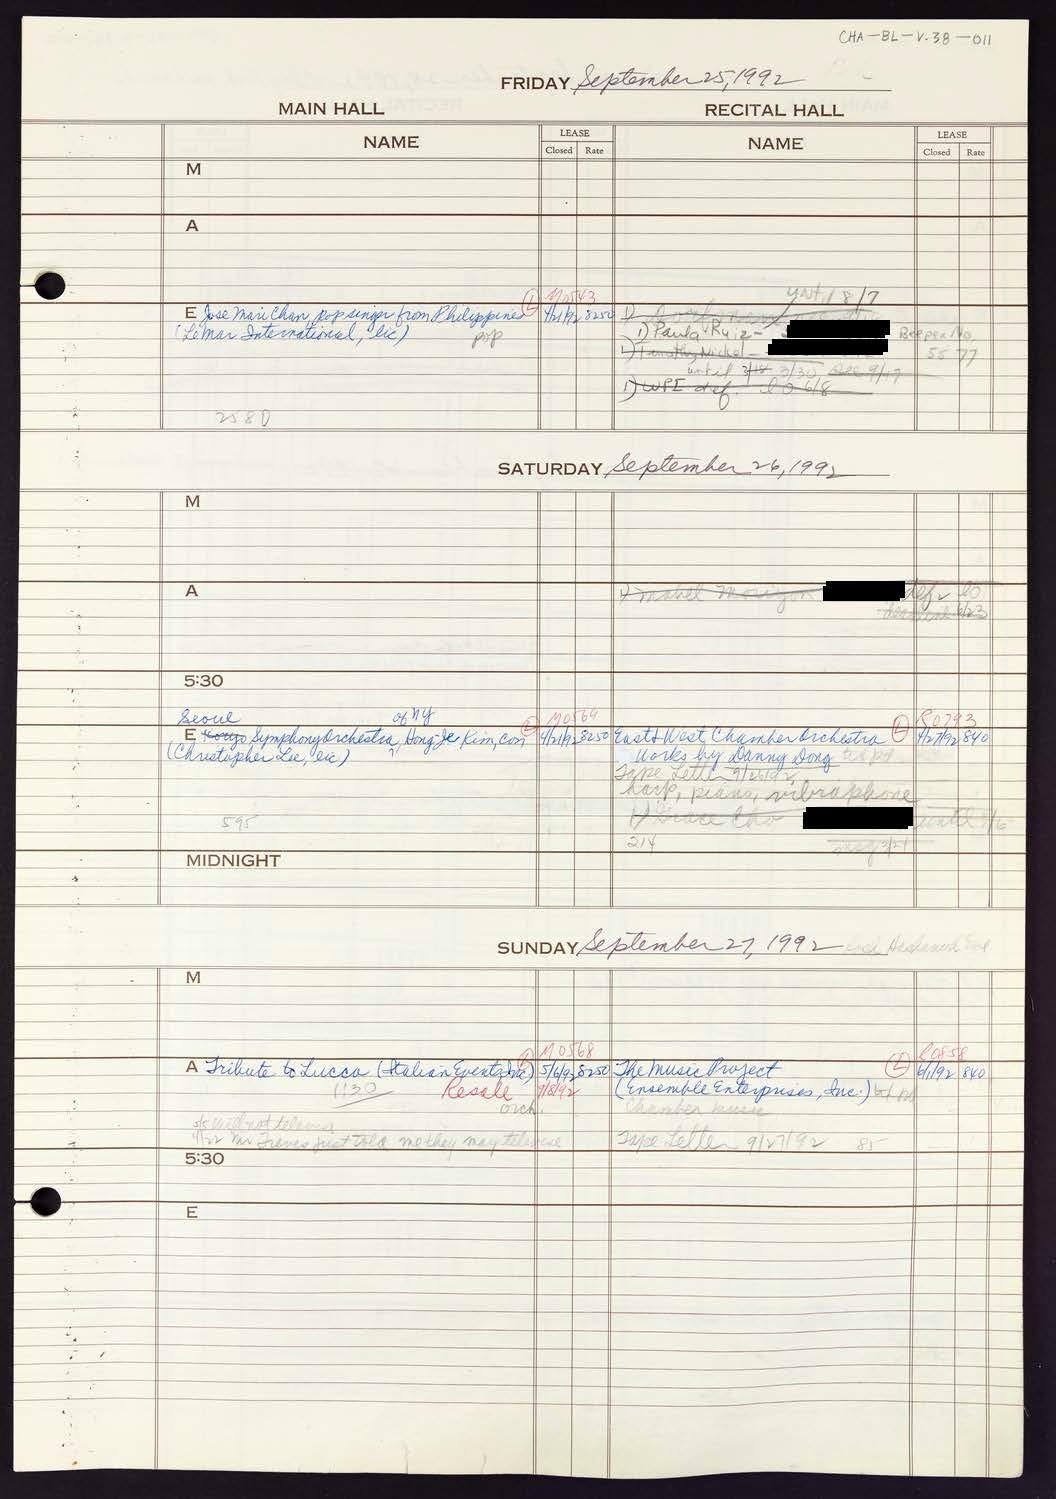 CHA-BL-V.38-011
FRIDAY September 25, 1992
MAIN HALL
RECITAL HALL
NAME
LEASE
Closed Rate
NAME
LEASE
Closed Rate
M
A
until 8/7
M0543
E Jose Mari Chan, pop singer from Philippines L 4/21/92 8250
(LeMar International, lic)
pop
258D
1)
1) Paula Ruiz - Beeper No.
1) Timothy Nickel - 5577
until 2/18 3/30 Dec 9/17
1) WPE def. lo 6/8
SATURDAY September 26, 1992
M
A
1) Mabel def. lo
6/23
5:30
Seoul of NY
M0569
E Koryo Symphony Orchestra, Hong Je Kim, con L 4/21/92 8250
(Christopher Lee, lic)
595
R0793
East & West Chamber Orchestra L 4/27/92 840
Works by Danny Dong
Tape Letter 9/26/92
harp, piano, vibraphone
1) Grace Cho until
214
MIDNIGHT
SUNDAY September 27, 1992 Rosh Hashanah Eve
M
M0568
A Tribute to Lucca (Italian Events, Inc) 5/6/92 8250
1130 Resale 7/8/92
orch.
will not televise
Mr just told me they may televise
R0858
The Music Project L 6/1/92 840
(Ensemble Enterprises, Inc.)
Chamber music
Tape Letter 9/27/92 85
5:30
E